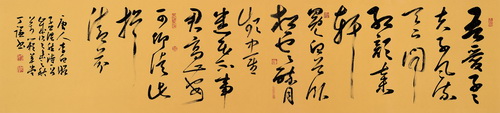 吾爱孟
夫子风流
天下闻
红颜弃
轩
冕白首卧
松云醉月
频中圣
迷花不事
君高山安
可仰徒此
揖
清芬
唐人李白